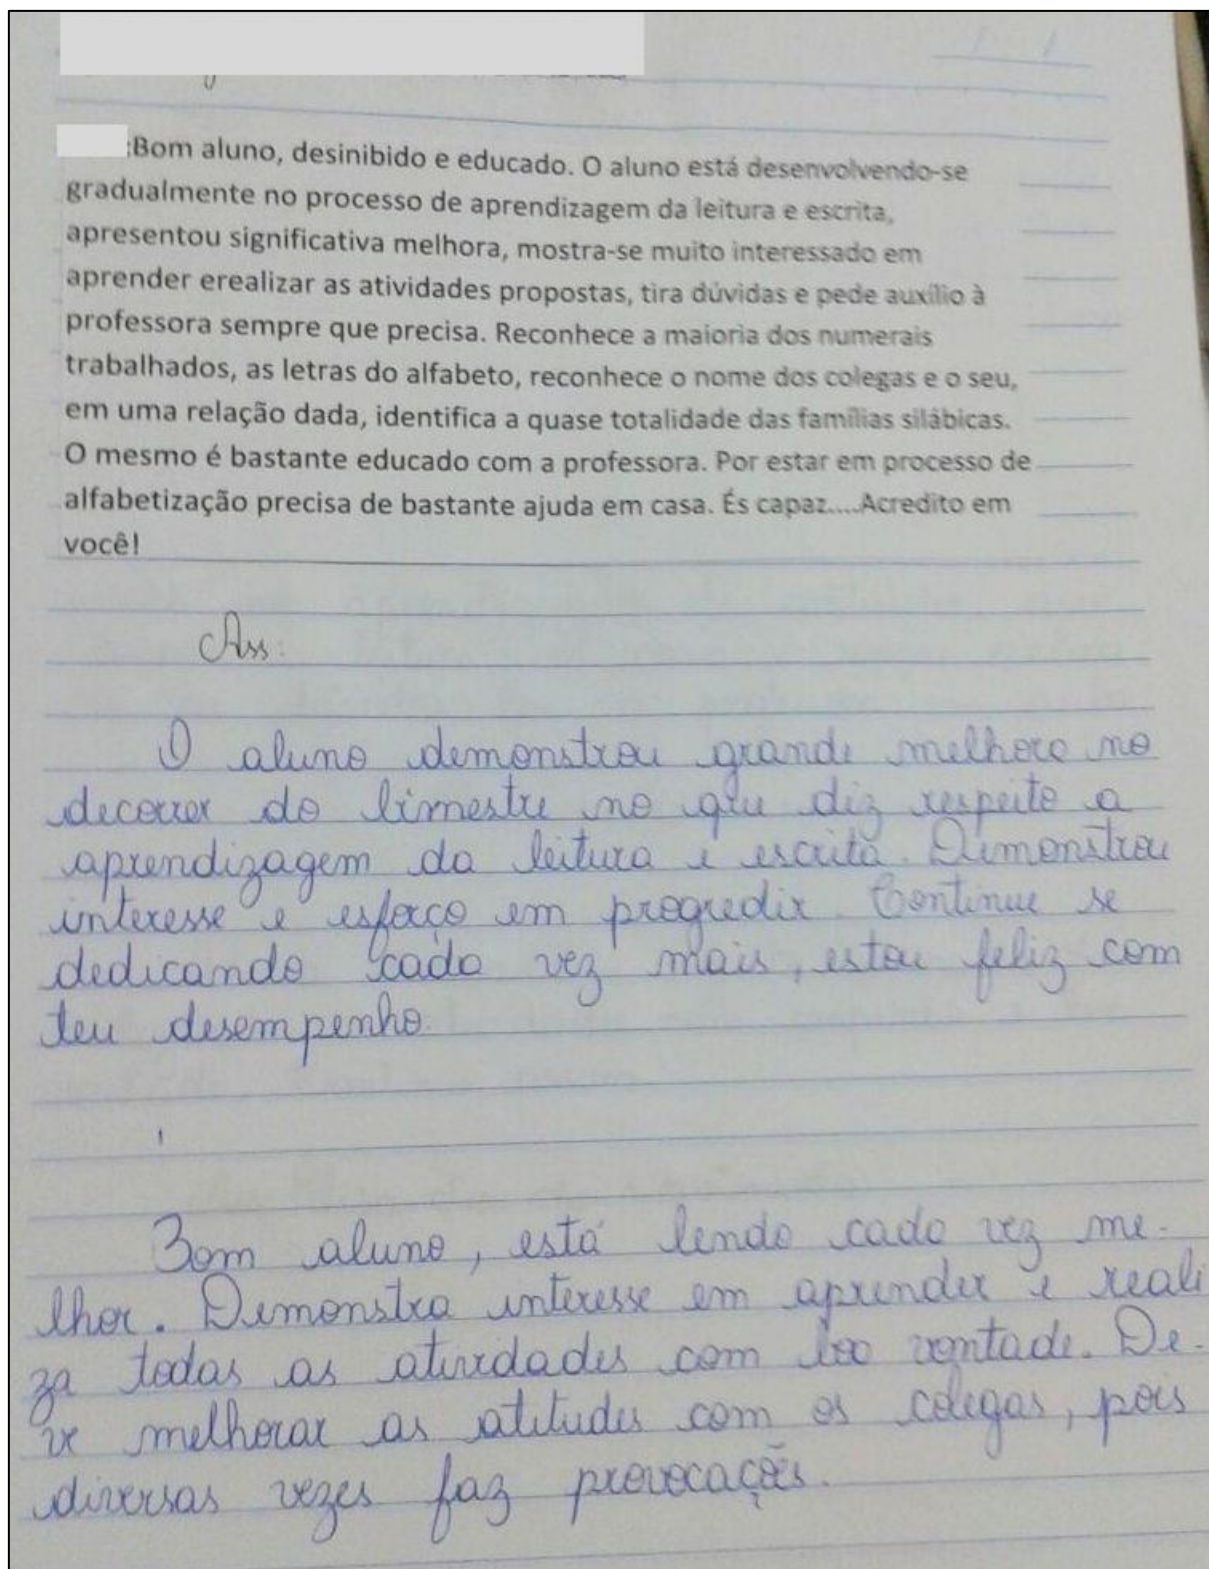 :Bom aluno, desinibido e educado. O aluno está desenvolvendo-se
gradualmente no processo de aprendizagem da leitura e escrita,
apresentou significativa melhora, mostra-se muito interessado em
aprender erealizar as atividades propostas, tira dúvidas e pede auxílio à
professora sempre que precisa. Reconhece a maioria dos numerais
trabalhados, as letras do alfabeto, reconhece o nome dos colegas e o seu,
em uma relação dada, identifica a quase totalidade das famílias silábicas.
O mesmo é bastante educado com a professora. Por estar em processo de
alfabetização precisa de bastante ajuda em casa. És capaz....Acredito em
você!
Ass:
O aluno demonstrou grande melhora no
decorrer do bimestre no que diz respeito a
aprendizagem da leitura e escrita. Demonstrou
interesse e esforço em progredir. Continue se
dedicando cada vez mais, estou feliz com
teu desempenho.
Bom aluno, está lendo cada vez me-
lhor. Demonstra interesse em aprender e reali
za todas as atividades com boa vontade. De-
ve melhorar as atitudes com os colegas, pois
diversas vezes faz provocações.